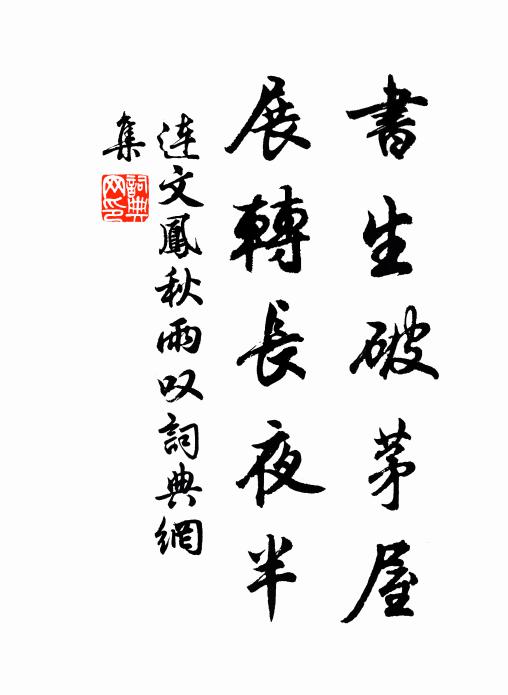 書生破茅屋
展轉長夜半
連文鳳秋雨叹詞典網
集
詞典
网印